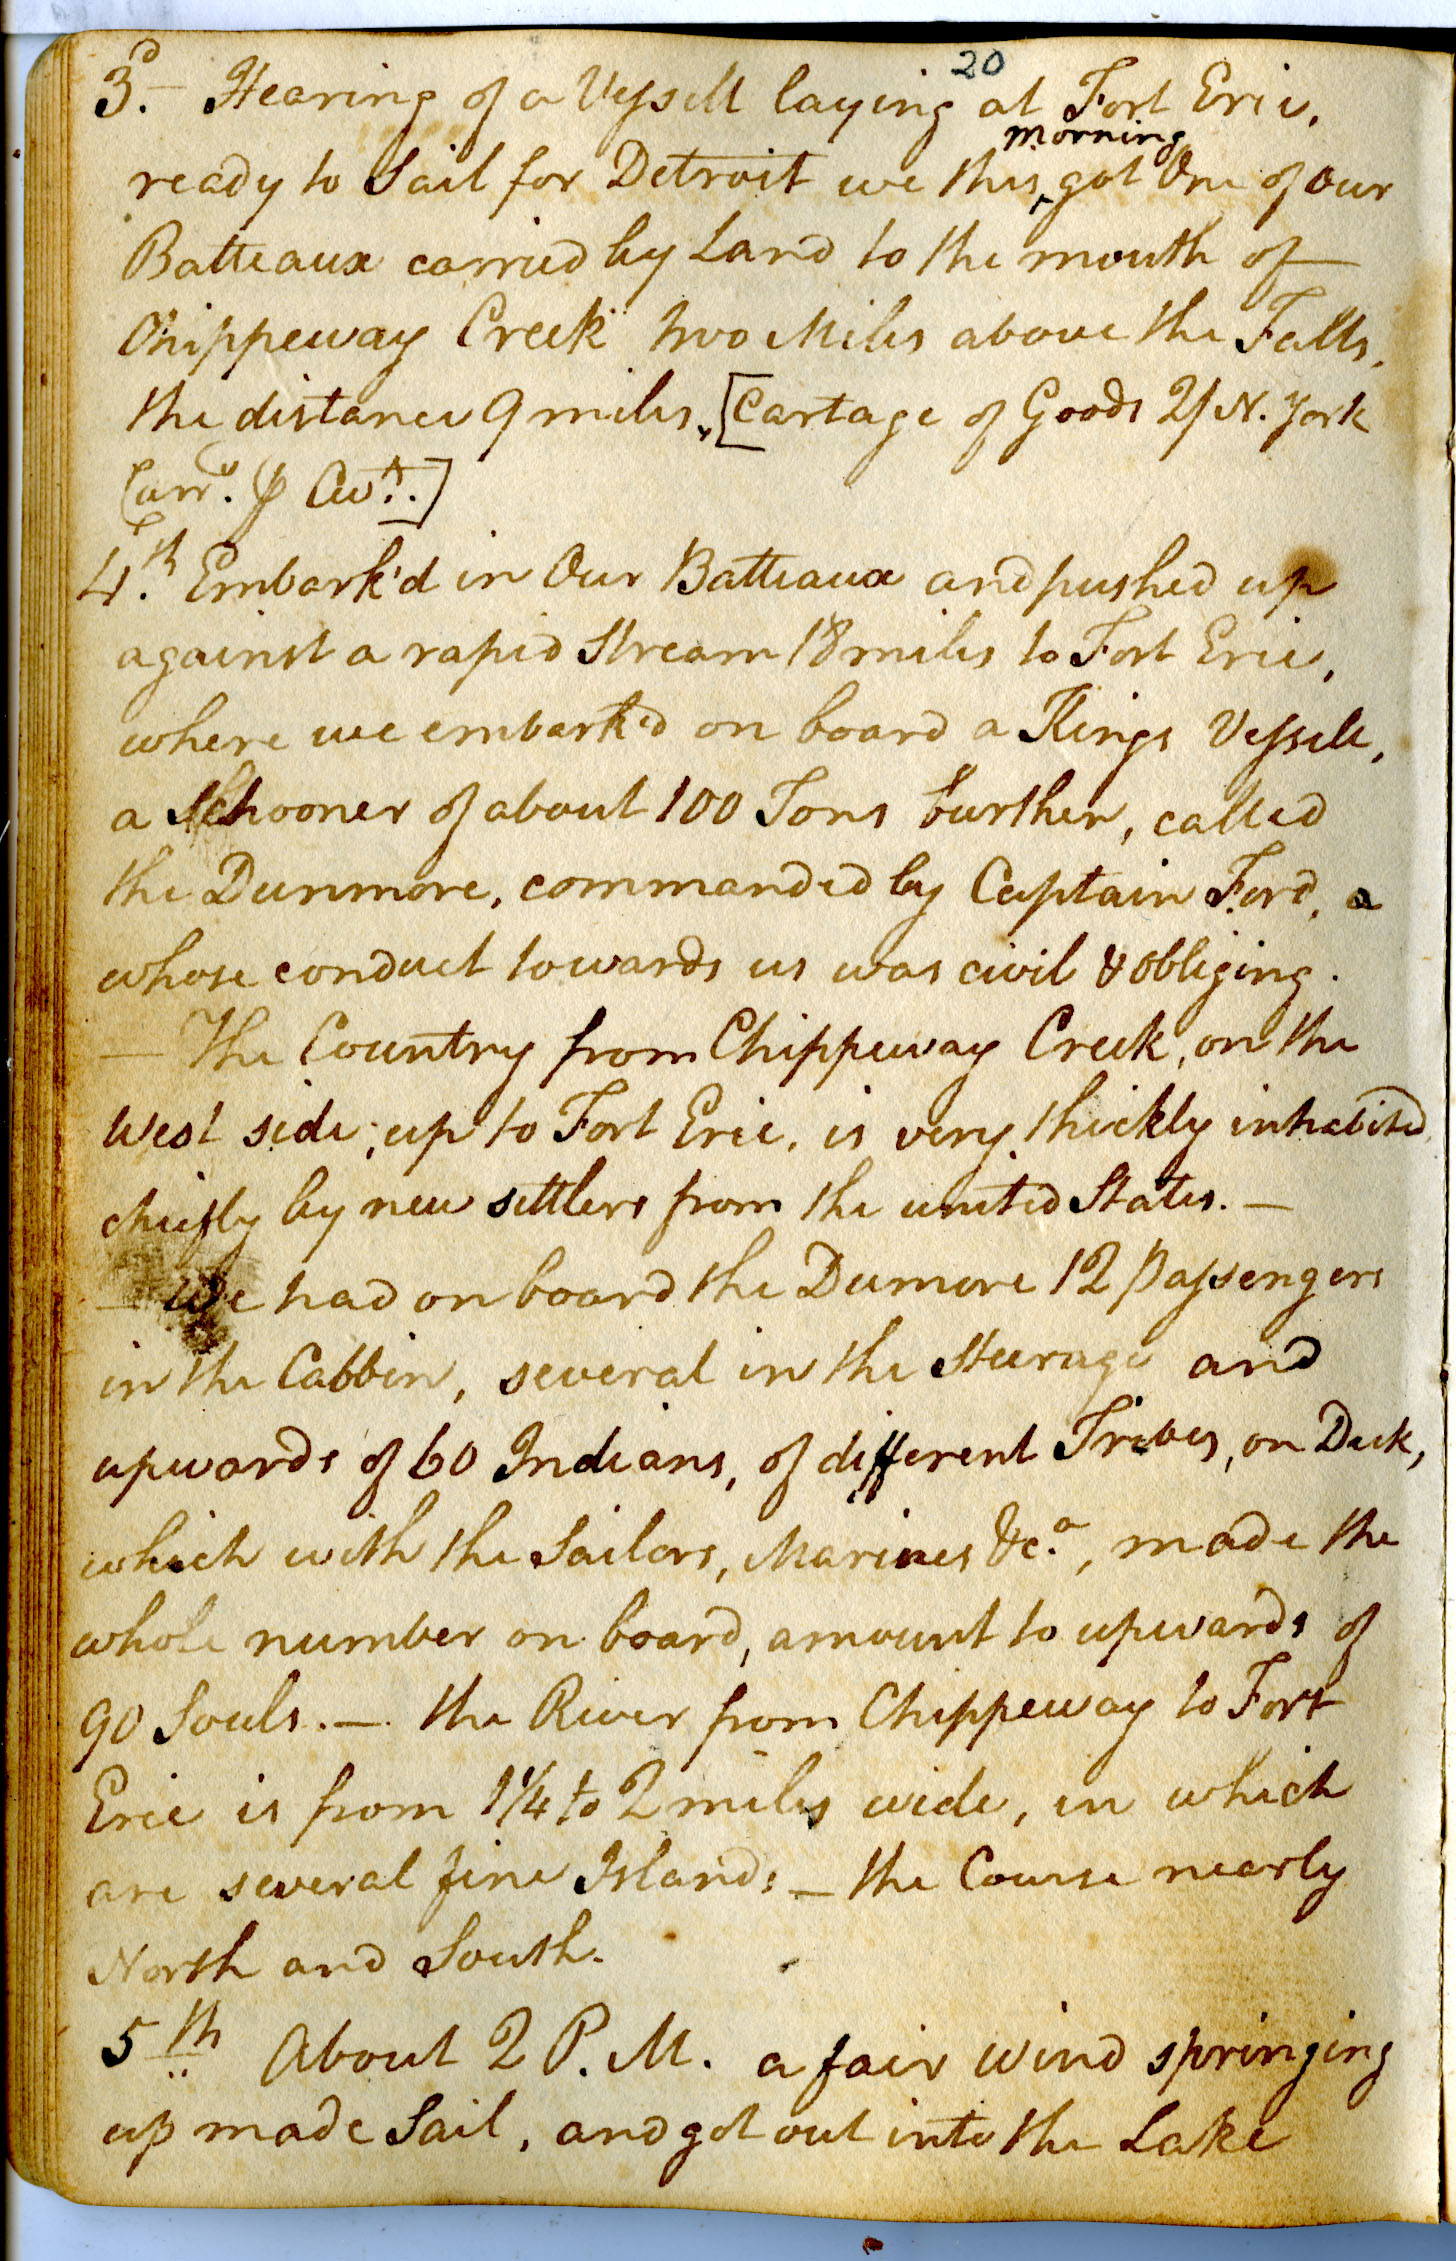 20
3d. - Hearing of a Vessell laying at Fort Erie,
morning
ready to Sail for Detroit we this ‸ got One of our
Batteaux carried by Land to the mouth of
Chippeway Creek two Miles above the Falls,
the distance 9 miles, [Cartage of Goods 2/ N. York
Curry. ⅌ Cwt.]
4th. Embark'd in Our Batteaux and pushed up
against a rapid Stream 18 miles to Fort Erie,
where we embark'd on board a Kings Vessell,
a Schooner of about 100 Tons burthen, called
the Dunmore, commanded by Captain Ford, a
whose conduct towards us was civil & obliging.
— The Country from Chippeway Creek, on the
West side, up to Fort Erie, is very thickly inhabited
chiefly by new settlers from the united States. —
— We had on board the Dunmore 12 passengers
in the Cabbin, several in the Steerage and
upwards of 60 Indians, of different Tribes, on Deck,
which with the Sailors, Marines &ca, made the
whole number on board, amount to upwards of
90 Souls. — the River from Chippeway to Fort
Erie is from 1¼ to 2 miles wide, in which
are several fine Islands — the Course nearly
North and South.
5th About 2 P.M. a fair wind springing
up made Sail, and got out into the Lake